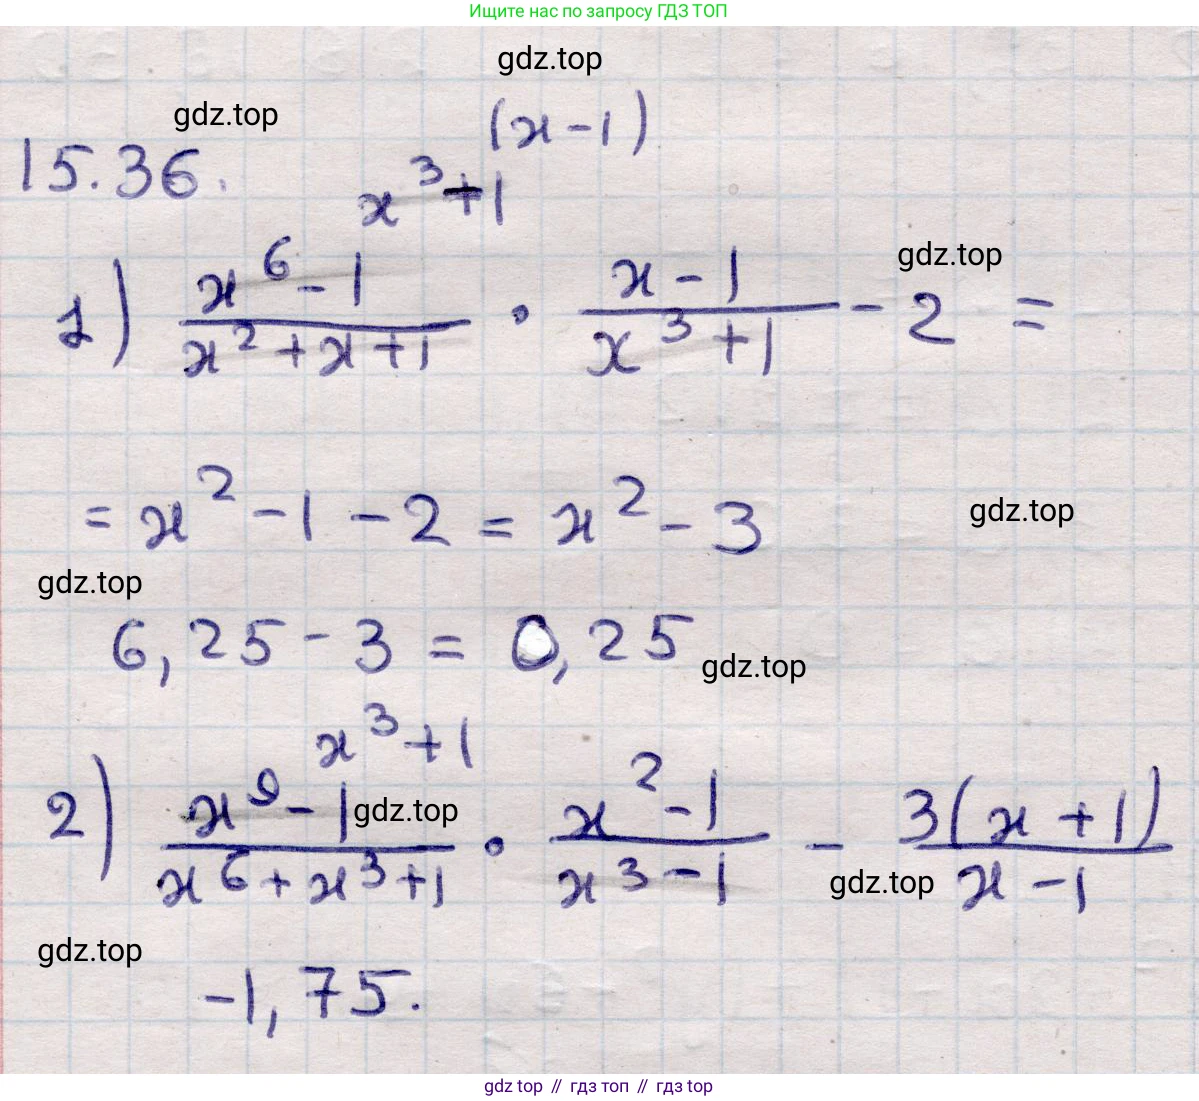 Ищите нас по запросу ГДЗ ТОП
gdz.top
gdz.top
(x-1)
15.36.
x³+1
gdz.top
1) (x⁶-1)/(x²+x+1) · (x-1)/(x³+1) - 2 =
= x²-1-2 = x²-3
gdz.top
gdz.top
6,25-3 = 0,25
gdz.top
x³+1
2) (x⁹-1)/(x⁶+x³+1) · (x²-1)/(x³-1) - 3(x+1)/(x-1)
gdz.top
gdz.top
gdz.top
-1,75.
gdz top // гдз топ // gdz top